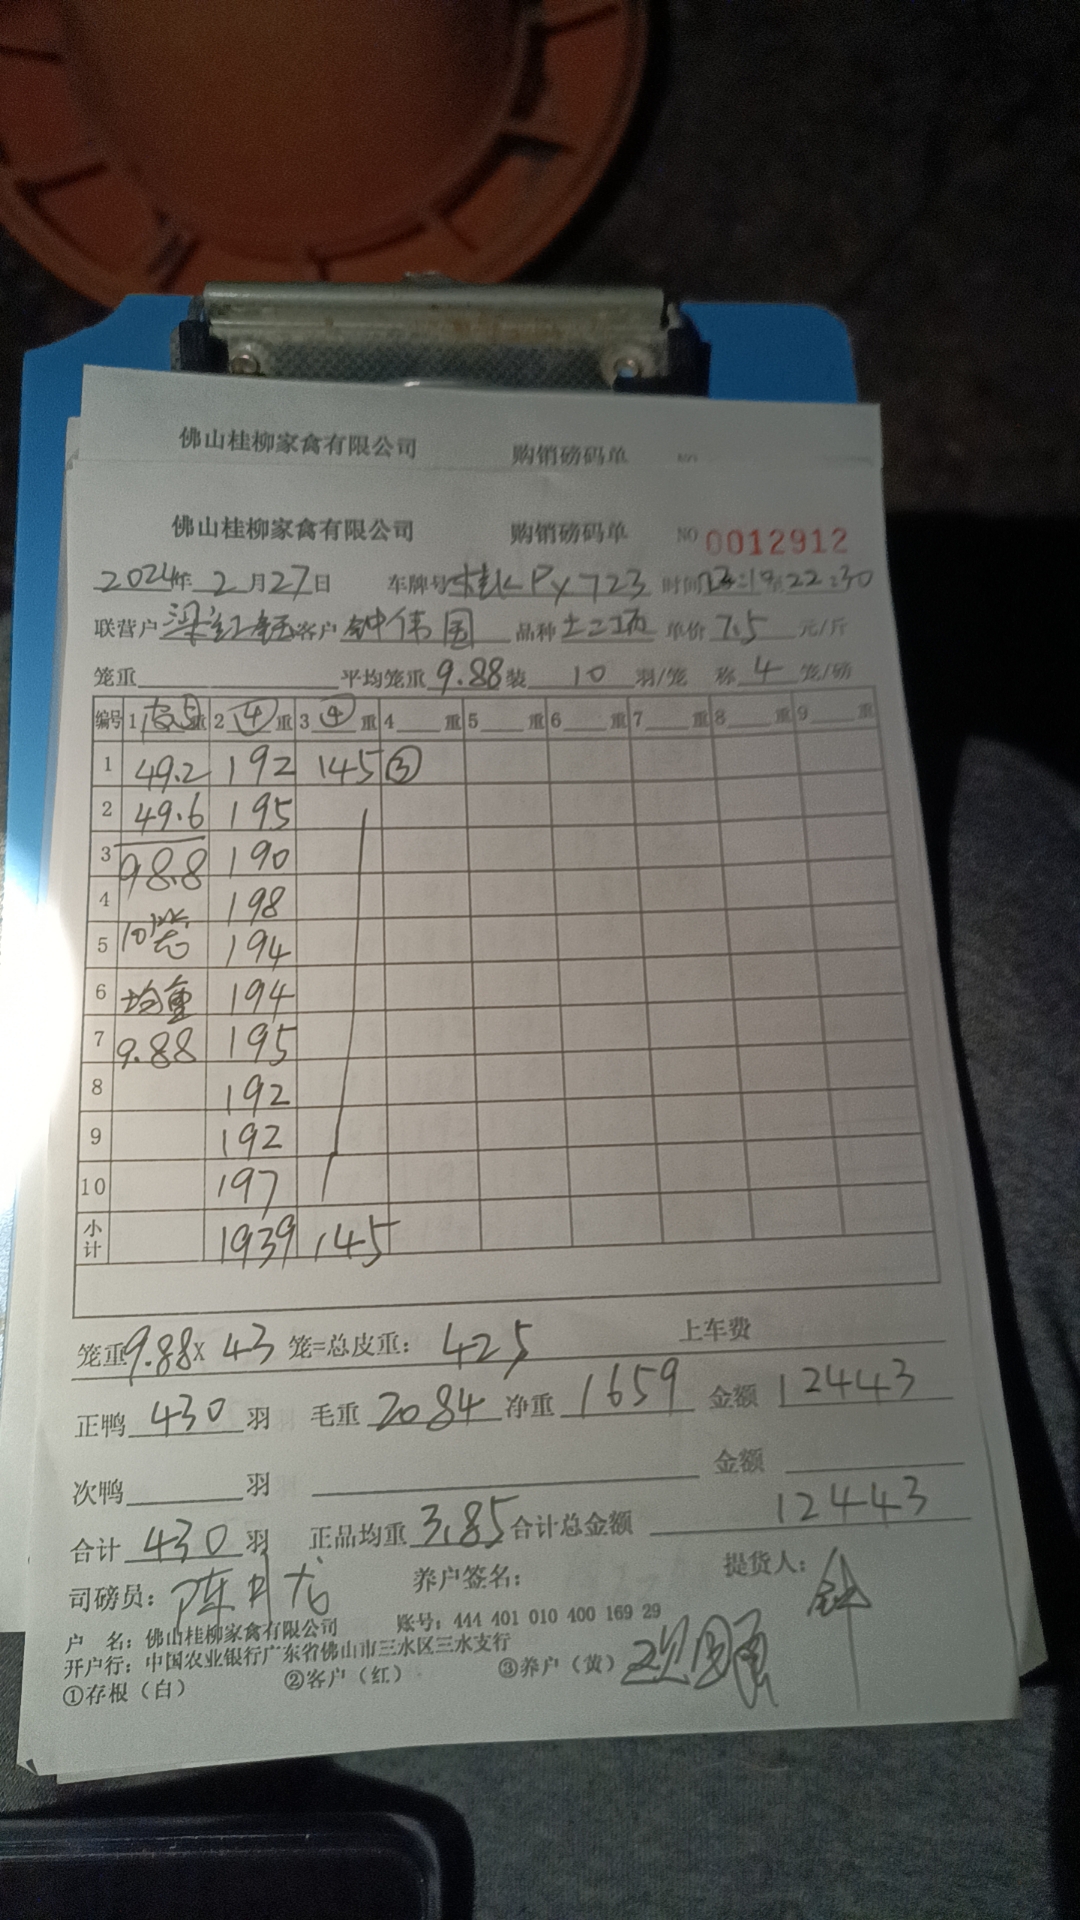 佛山桂柳家禽有限公司 购销磅码单
佛山桂柳家禽有限公司 购销磅码单 NO 0012912
2024年 2月27日 车牌号桂KPY723 时间 至22:30
联营户 梁红 客户 钟伟国 品种 土二 单价 7.5 元/斤
笼重 平均笼重 9.88 装 10 羽/笼 称 4 笼/磅
编号 1 皮⑤重 2 ④ 重 3 ④ 重 4 重 5 重 6 重 7 重 8 重 9 重
1 49.2 192 145 ③
2 49.6 195
3 98.8 190
4 198
5 10笼 194
6 均重 194
7 9.88 195
8 192
9 192
10 197
小计 1939 145
笼重9.88X 43 笼=总皮重: 425 上车费
正鸭 430 羽 毛重 2084 净重 1659 金额 12443
次鸭 羽 金额
合计 430 羽 正品均重 3.85 合计总金额 12443
司磅员: 陈月龙 养户签名: 提货人: 钟
户 名: 佛山桂柳家禽有限公司 账号: 444 401 010 400 169 29
开户行: 中国农业银行广东省佛山市三水区三水支行
①存根（白） ②客户（红） ③养户（黄）